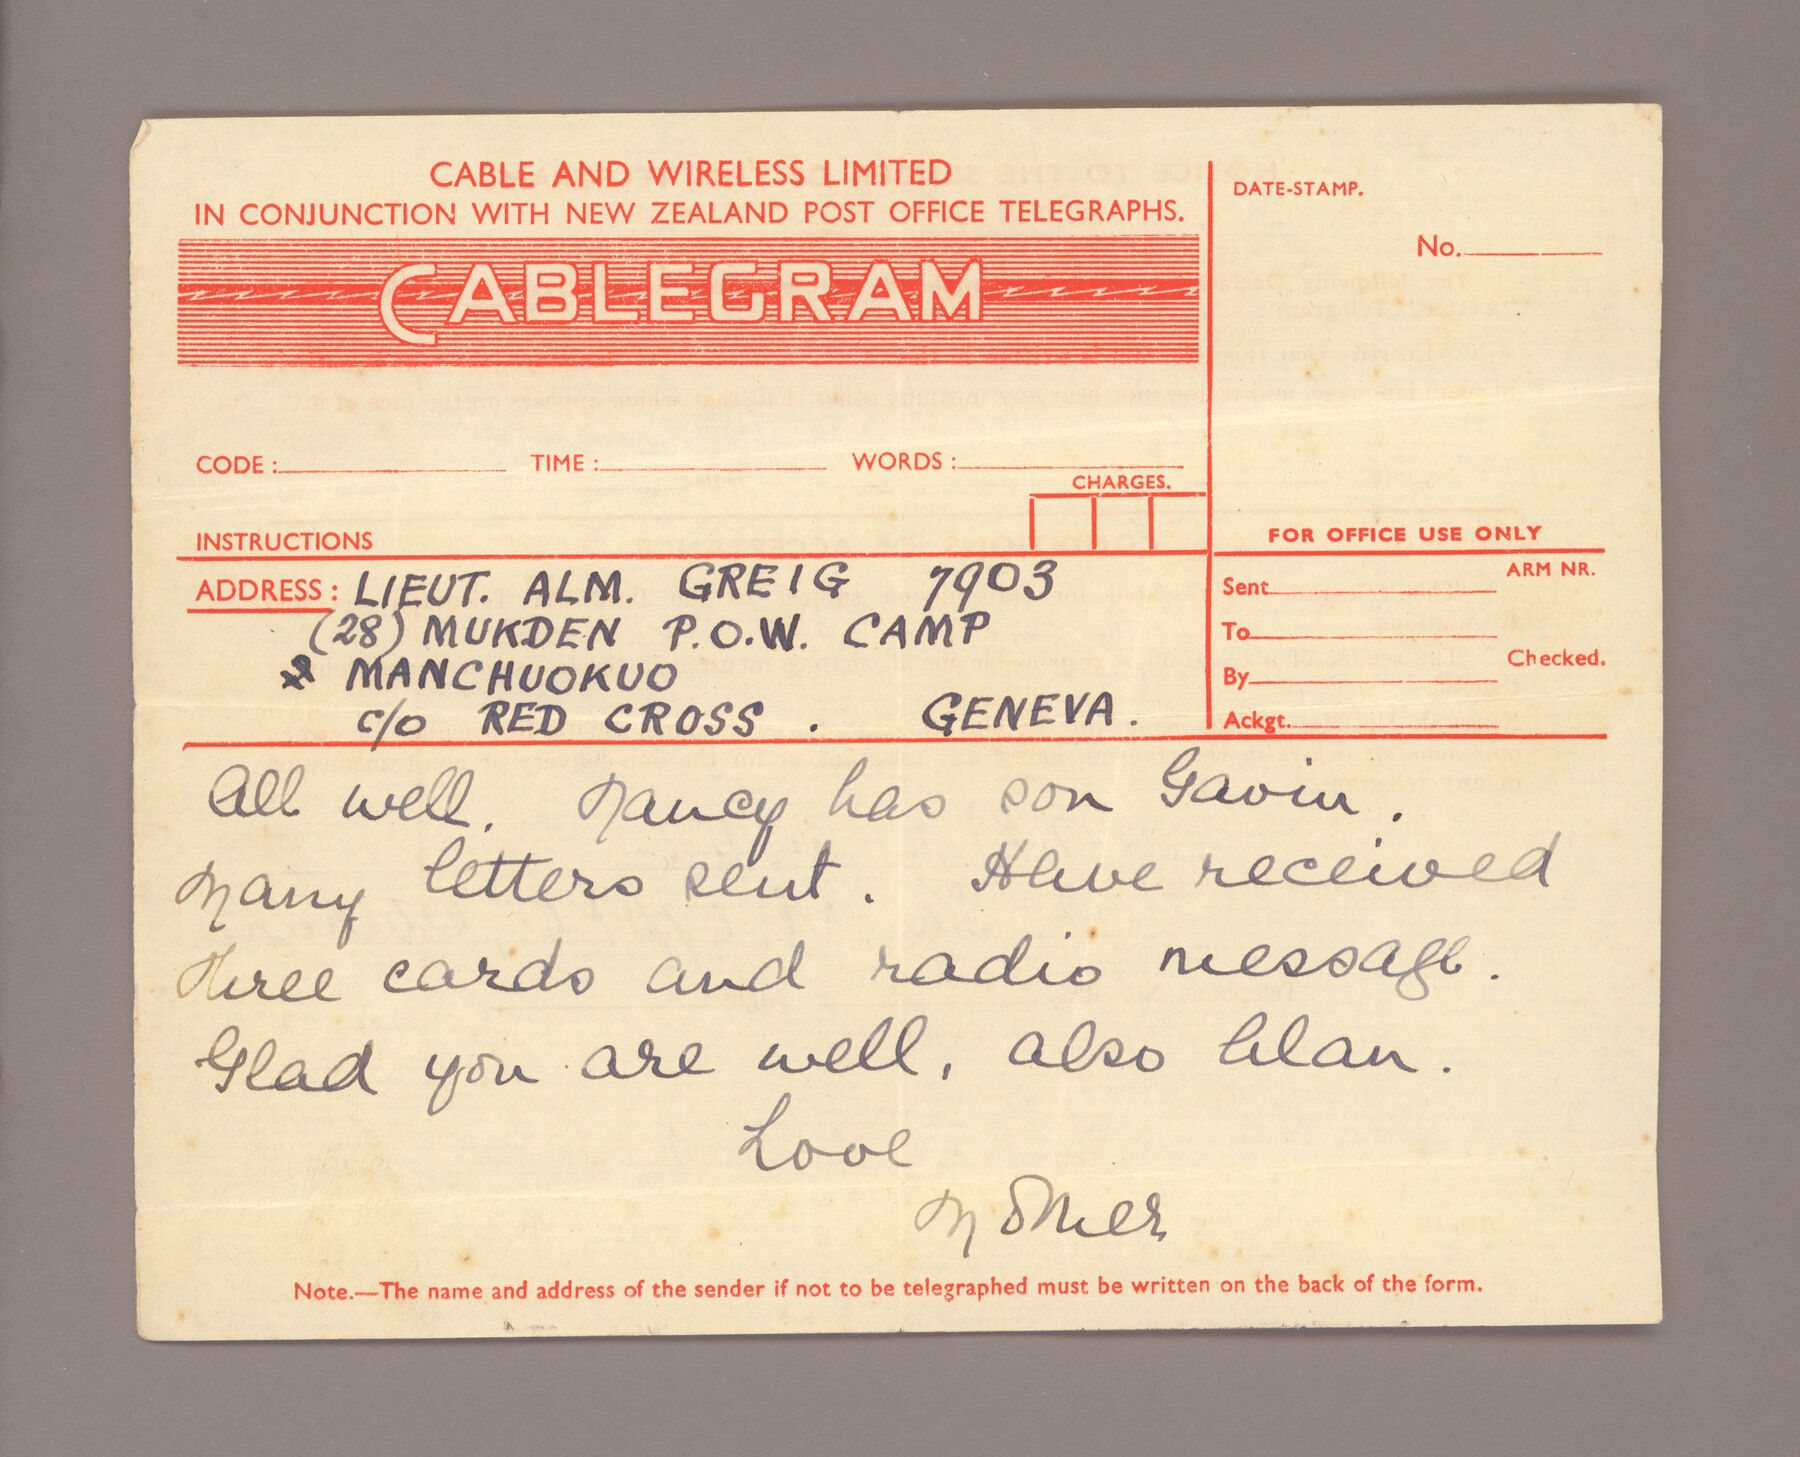 CABLE AND WIRELESS LIMITED
IN CONJUNCTION WITH NEW ZEALAND POST OFFICE TELEGRAPHS.
CABLEGRAM
DATE-STAMP.
No.
CODE : TIME : WORDS :
CHARGES.
INSTRUCTIONS
FOR OFFICE USE ONLY
ADDRESS : LIEUT. ALM. GREIG 7903
(28) MUKDEN P.O.W. CAMP
MANCHUOKUO
c/o RED CROSS . GENEVA.
ARM NR.
Sent
To
Checked.
By
Ackgt.
All well. Nancy has son Gavin.
Many letters sent. Have received
three cards and radio message.
Glad you are well, also
Love
Mother
Note.—The name and address of the sender if not to be telegraphed must be written on the back of the form.